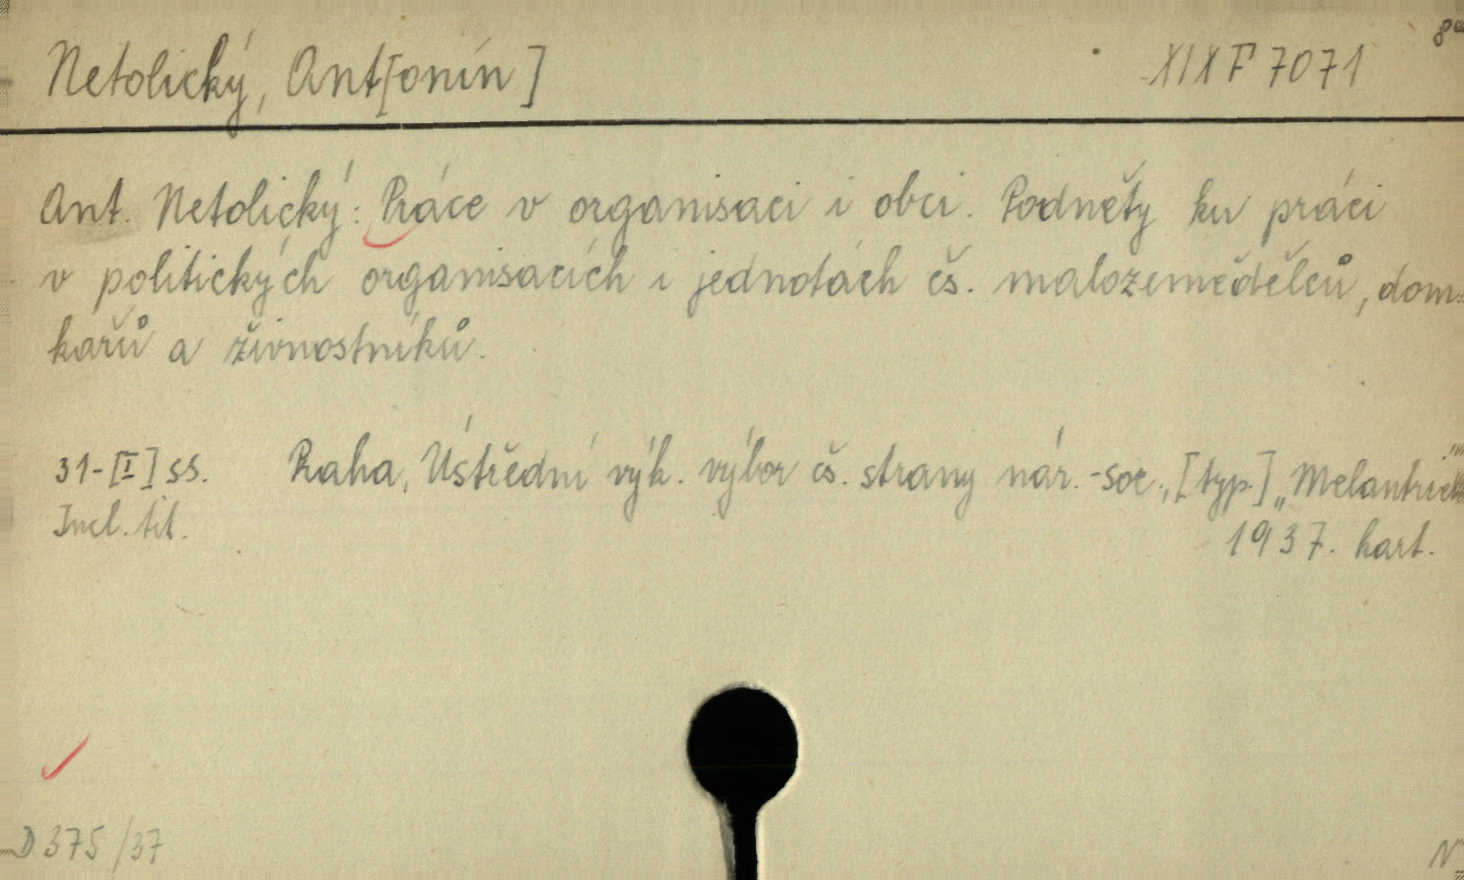 Netolický, Ant[onín] XIX F 7071
Ant. Netolický: Práce v organisaci i obci. Podněty ku práci
v politických organisacích i jednotách čs. malozemědělců, dom-
kařů a živnostníků.
31-[I] ss. Praha, Ústřední výk. výbor čs. strany nár.-soc., [typ.] „Melantrich"
Incl. tit. 1937. kart.
D 375/37